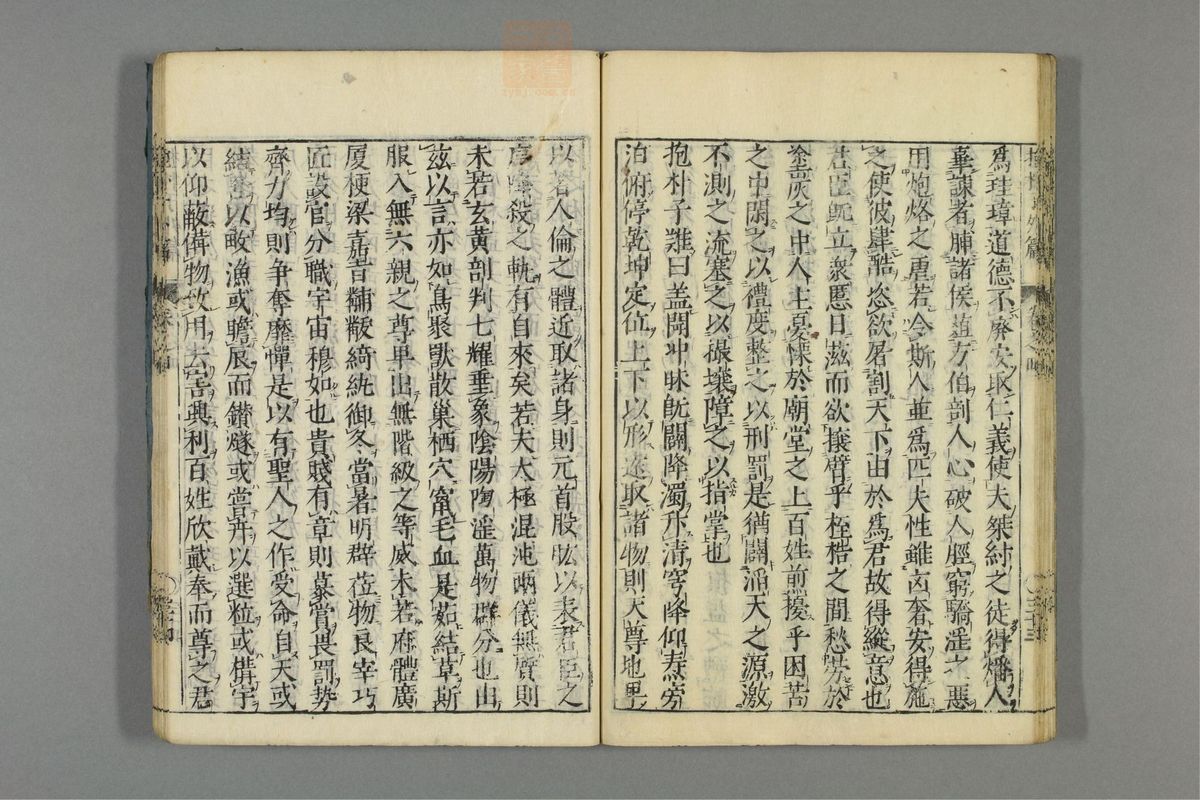 爲珪璋道德不廢安取仁義使夫桀紂之徒得燔人
辜諫者脯諸侯葅方伯剖人心破人脛窮驕淫之惡
用炮烙之虐若令斯人並爲匹夫性雖凶奢安得施
之使彼肆酷恣欲屠割天下由於爲君故得縱意也
君臣旣立衆慝日滋而欲攘臂乎桎梏之間愁勞於
塗炭之中人主憂慄於廟堂之上百姓煎擾乎困苦
之中閑之以禮度整之以刑罰是猶闢滔天之源激
不測之流塞之以撮壤障之以指掌也
抱朴子難曰盖聞冲昧旣闢降濁升清穹降仰燾旁
泊俯停乾坤定位上下以形遠取諸物則天尊地卑
以著人倫之體近取諸身則元首股肱以表君臣之
序降殺之軌有自來矣若夫太極混沌兩儀無質則
未若玄黃剖判七耀垂象陰陽陶淫萬物群分也由
兹以言亦如鳥聚獸散巢栖穴竄毛血是茹結草斯
服入無六親之尊卑出無階級之等威未若府體廣
厦梗粱嘉旨黼黻綺紈御冬當暑明辟莅物良宰巧
匠設官分職宇宙穆如也貴賤有章則慕賞畏罰勢
齊力均則争奪靡憚是以有聖人之作受命自天或
結罟以畋漁或瞻辰而鑽燧或嘗卉以選粒或構宇
以仰蔽備物致用去害興利百姓欣戴奉而尊之君